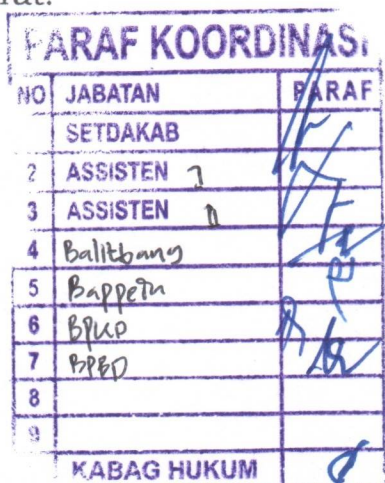 PARAF KOORDINASI
NO JABATAN PARAF
SETDAKAB
2 ASSISTEN I
3 ASSISTEN II
4 Balitbang
5 Bappeda
6 BPKD
7 BPBD
8
9
KABAG HUKUM